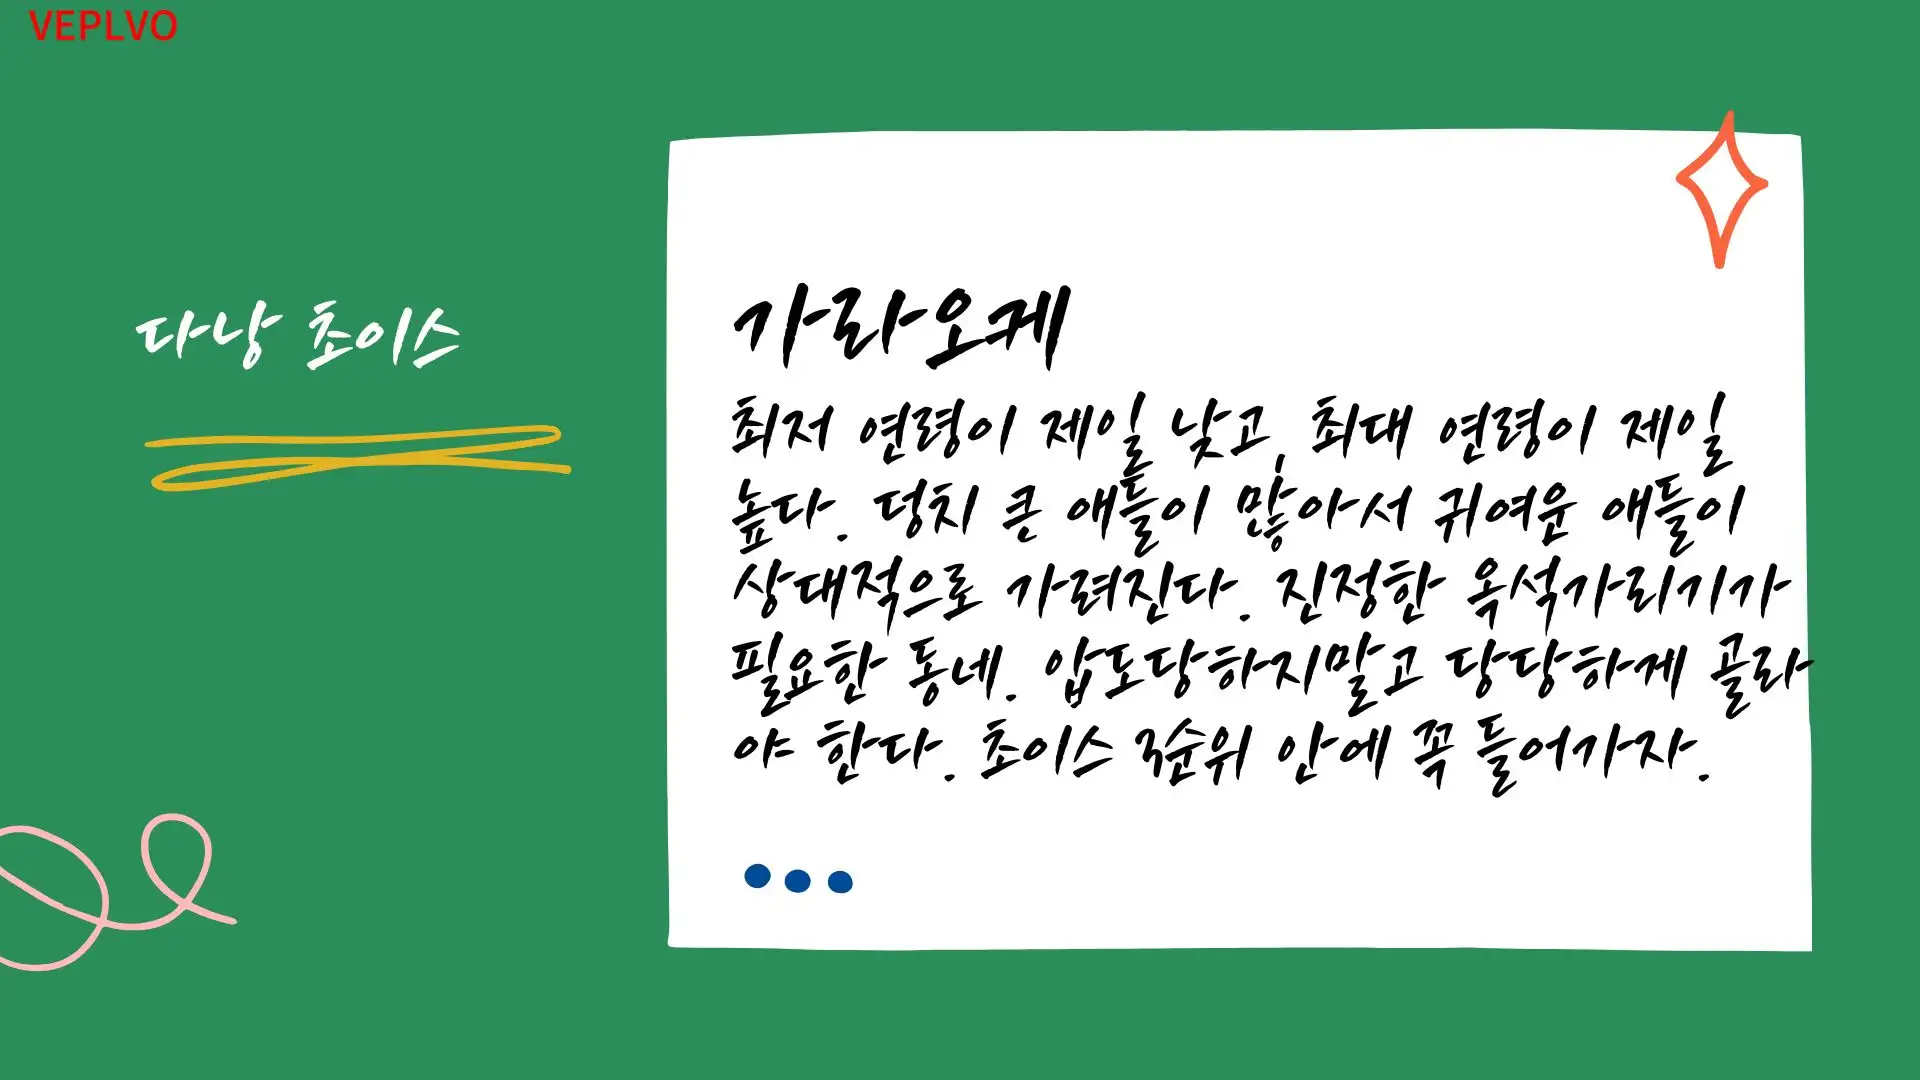 VEPLVO
다낭 초이스
가라오케
최저 연령이 제일 낮고, 최대 연령이 제일
높다. 덩치 큰 애들이 많아서 귀여운 애들이
상대적으로 가려진다. 진정한 옥석가리기가
필요한 동네. 압도당하지말고 당당하게 골라
야 한다. 초이스 3순위 안에 꼭 들어가자.